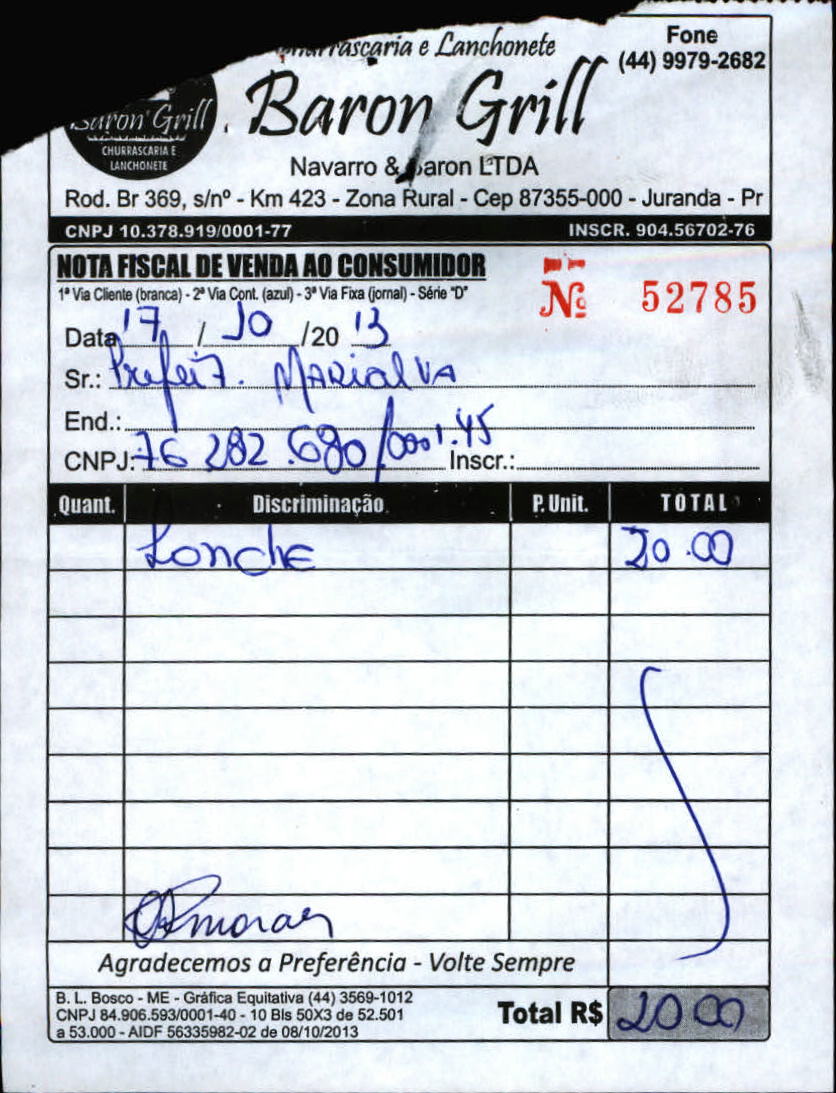 Churrascaria e Lanchonete
Fone
(44) 9979-2682
Baron Grill
CHURRASCARIA E
LANCHONETE
Baron Grill
Navarro & Baron LTDA
Rod. Br 369, s/nº - Km 423 - Zona Rural - Cep 87355-000 - Juranda - Pr
CNPJ 10.378.919/0001-77 INSCR. 904.56702-76
NOTA FISCAL DE VENDA AO CONSUMIDOR
1ª Via Cliente (branca) - 2ª Via Cont. (azul) - 3ª Via Fixa (jornal) - Série "D"
Nº 52785
Data 17 / 10 /20 13
Sr.: Prefeit. MARIALVA
End.:
CNPJ: 76 282.680/0001.45 Inscr.:
Quant. Discriminação P. Unit. TOTAL
Lanche 20.00
Agradecemos a Preferência - Volte Sempre
B. L. Bosco - ME - Gráfica Equitativa (44) 3569-1012
CNPJ 84.906.593/0001-40 - 10 Bls 50X3 de 52.501
a 53.000 - AIDF 56335982-02 de 08/10/2013
Total R$ 20 00